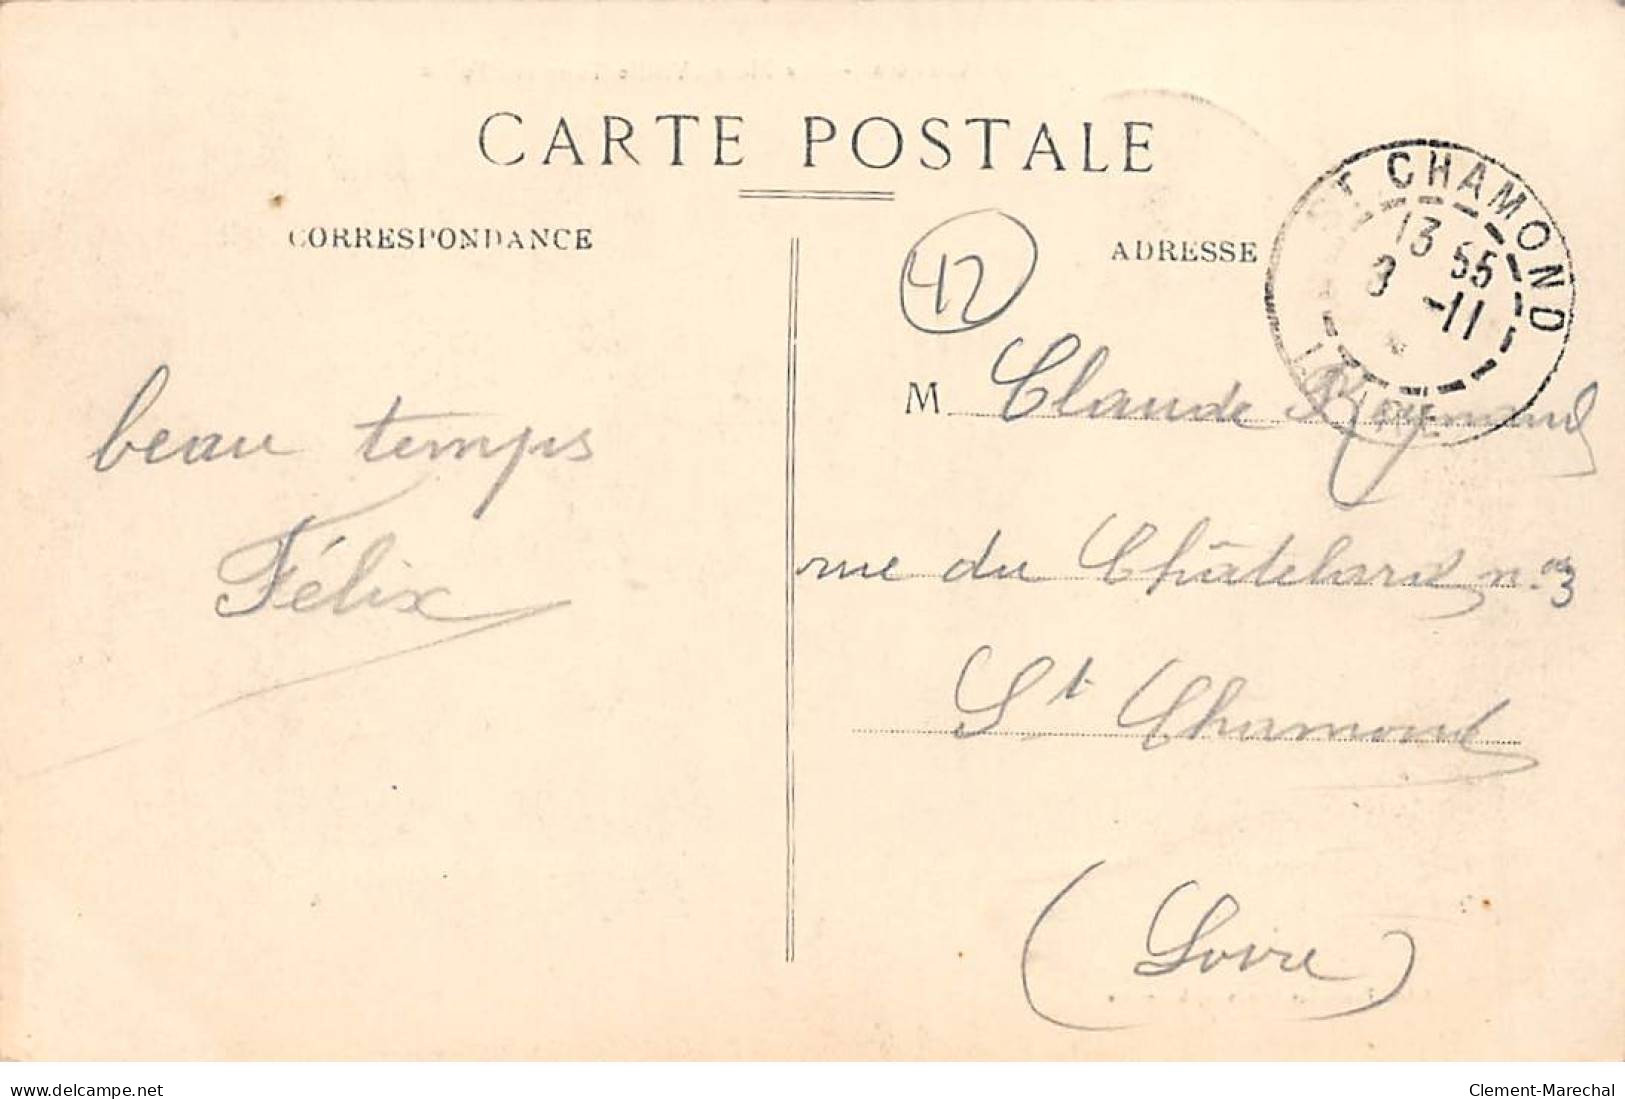 CARTE POSTALE
CORRESPONDANCE
ADRESSE
42
ST CHAMOND
13 55
8 -11
LOIRE
M Claude Reymaud
beau temps
rue du Châtelard no 3
Félix
St Chamond
(Loire)
delcampe.net
Clement-Marechal